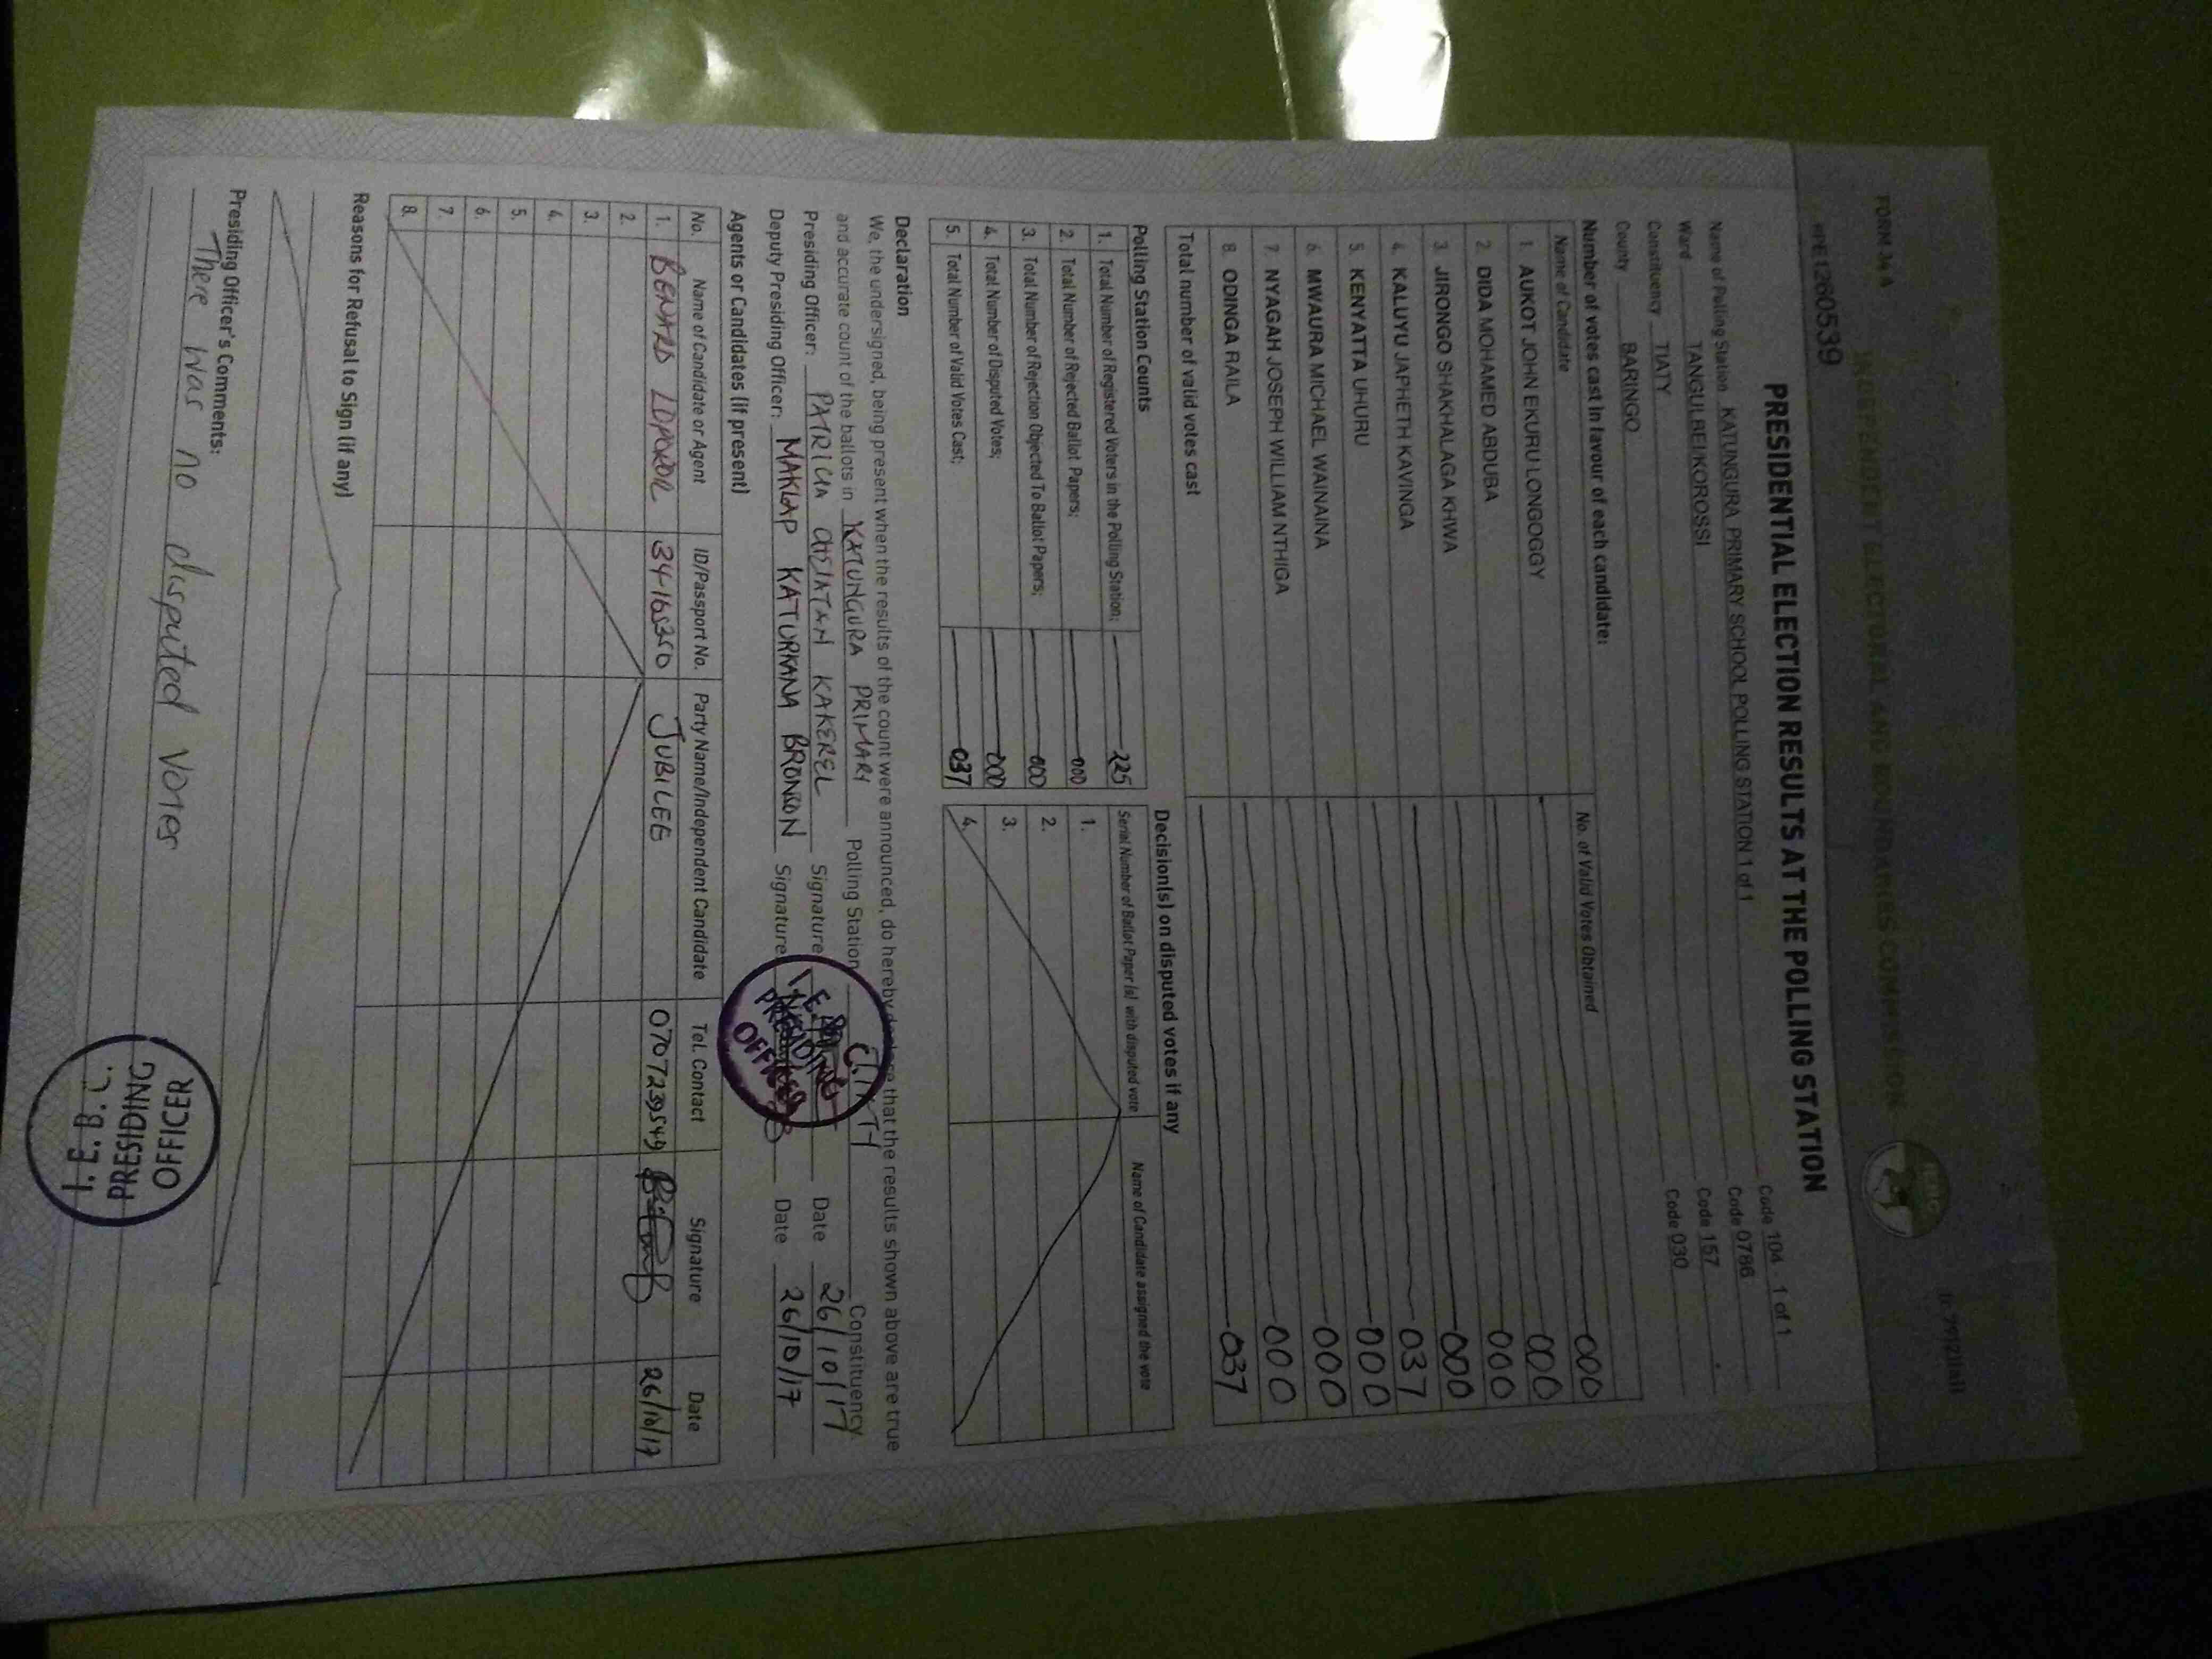 FORM 34 A
INDEPENDENT ELECTORAL AND BOUNDARIES COMMISSION
1260539
PRESIDENTIAL ELECTION RESULTS AT THE POLLING STATION
Name of Polling Station KATUNGURA PRIMARY SCHOOL POLLING STATION 1 of 1 Code 104 - 1 of 1
Ward TANGULBEI/KOROSSI Code 0786
Constituency TIATY Code 157
County BARINGO Code 030
Number of votes cast in favour of each candidate:
Name of Candidate No. of Valid Votes Obtained
1. AUKOT JOHN EKURU LONGOGGY 000
2. DIDA MOHAMED ABDUBA 000
3. JIRONGO SHAKHALAGA KHWA 000
4. KALUYU JAPHETH KAVINGA 000
5. KENYATTA UHURU 037
6. MWAURA MICHAEL WAINAINA 000
7. NYAGAH JOSEPH WILLIAM NTHIGA 000
8. ODINGA RAILA 000
Total number of valid votes cast 037
Polling Station Counts
1. Total Number of Registered Voters in the Polling Station; 225
2. Total Number of Rejected Ballot Papers; 000
3. Total Number of Rejection Objected To Ballot Papers; 000
4. Total Number of Disputed Votes; 000
5. Total Number of Valid Votes Cast; 037
Decision(s) on disputed votes if any
Serial Number of Ballot Paper (s) with disputed vote Name of Candidate assigned the vote
1.
2.
3.
4.
Declaration
We, the undersigned, being present when the results of the count were announced, do hereby declare that the results shown above are true
and accurate count of the ballots in KATUNGURA PRIMARI Polling Station Constituency
Presiding Officer: PATRICIA KAKEREL Signature Date 26/10/17
Deputy Presiding Officer: MAKLAP KATURKANA BRONSON Signature Date 26/10/17
I.E.B.C.
PRESIDING
OFFICER
Agents or Candidates (if present)
No. Name of Candidate or Agent ID/Passport No. Party Name/Independent Candidate Tel. Contact Signature Date
1. BENARD LOPOKOR 34165350 JUBILEE 0707239549 26/10/17
2.
3.
4.
5.
6.
7.
8.
Reasons for Refusal to Sign (if any)
Presiding Officer's Comments:
There was no disputed votes
I.E.B.C.
PRESIDING
OFFICER